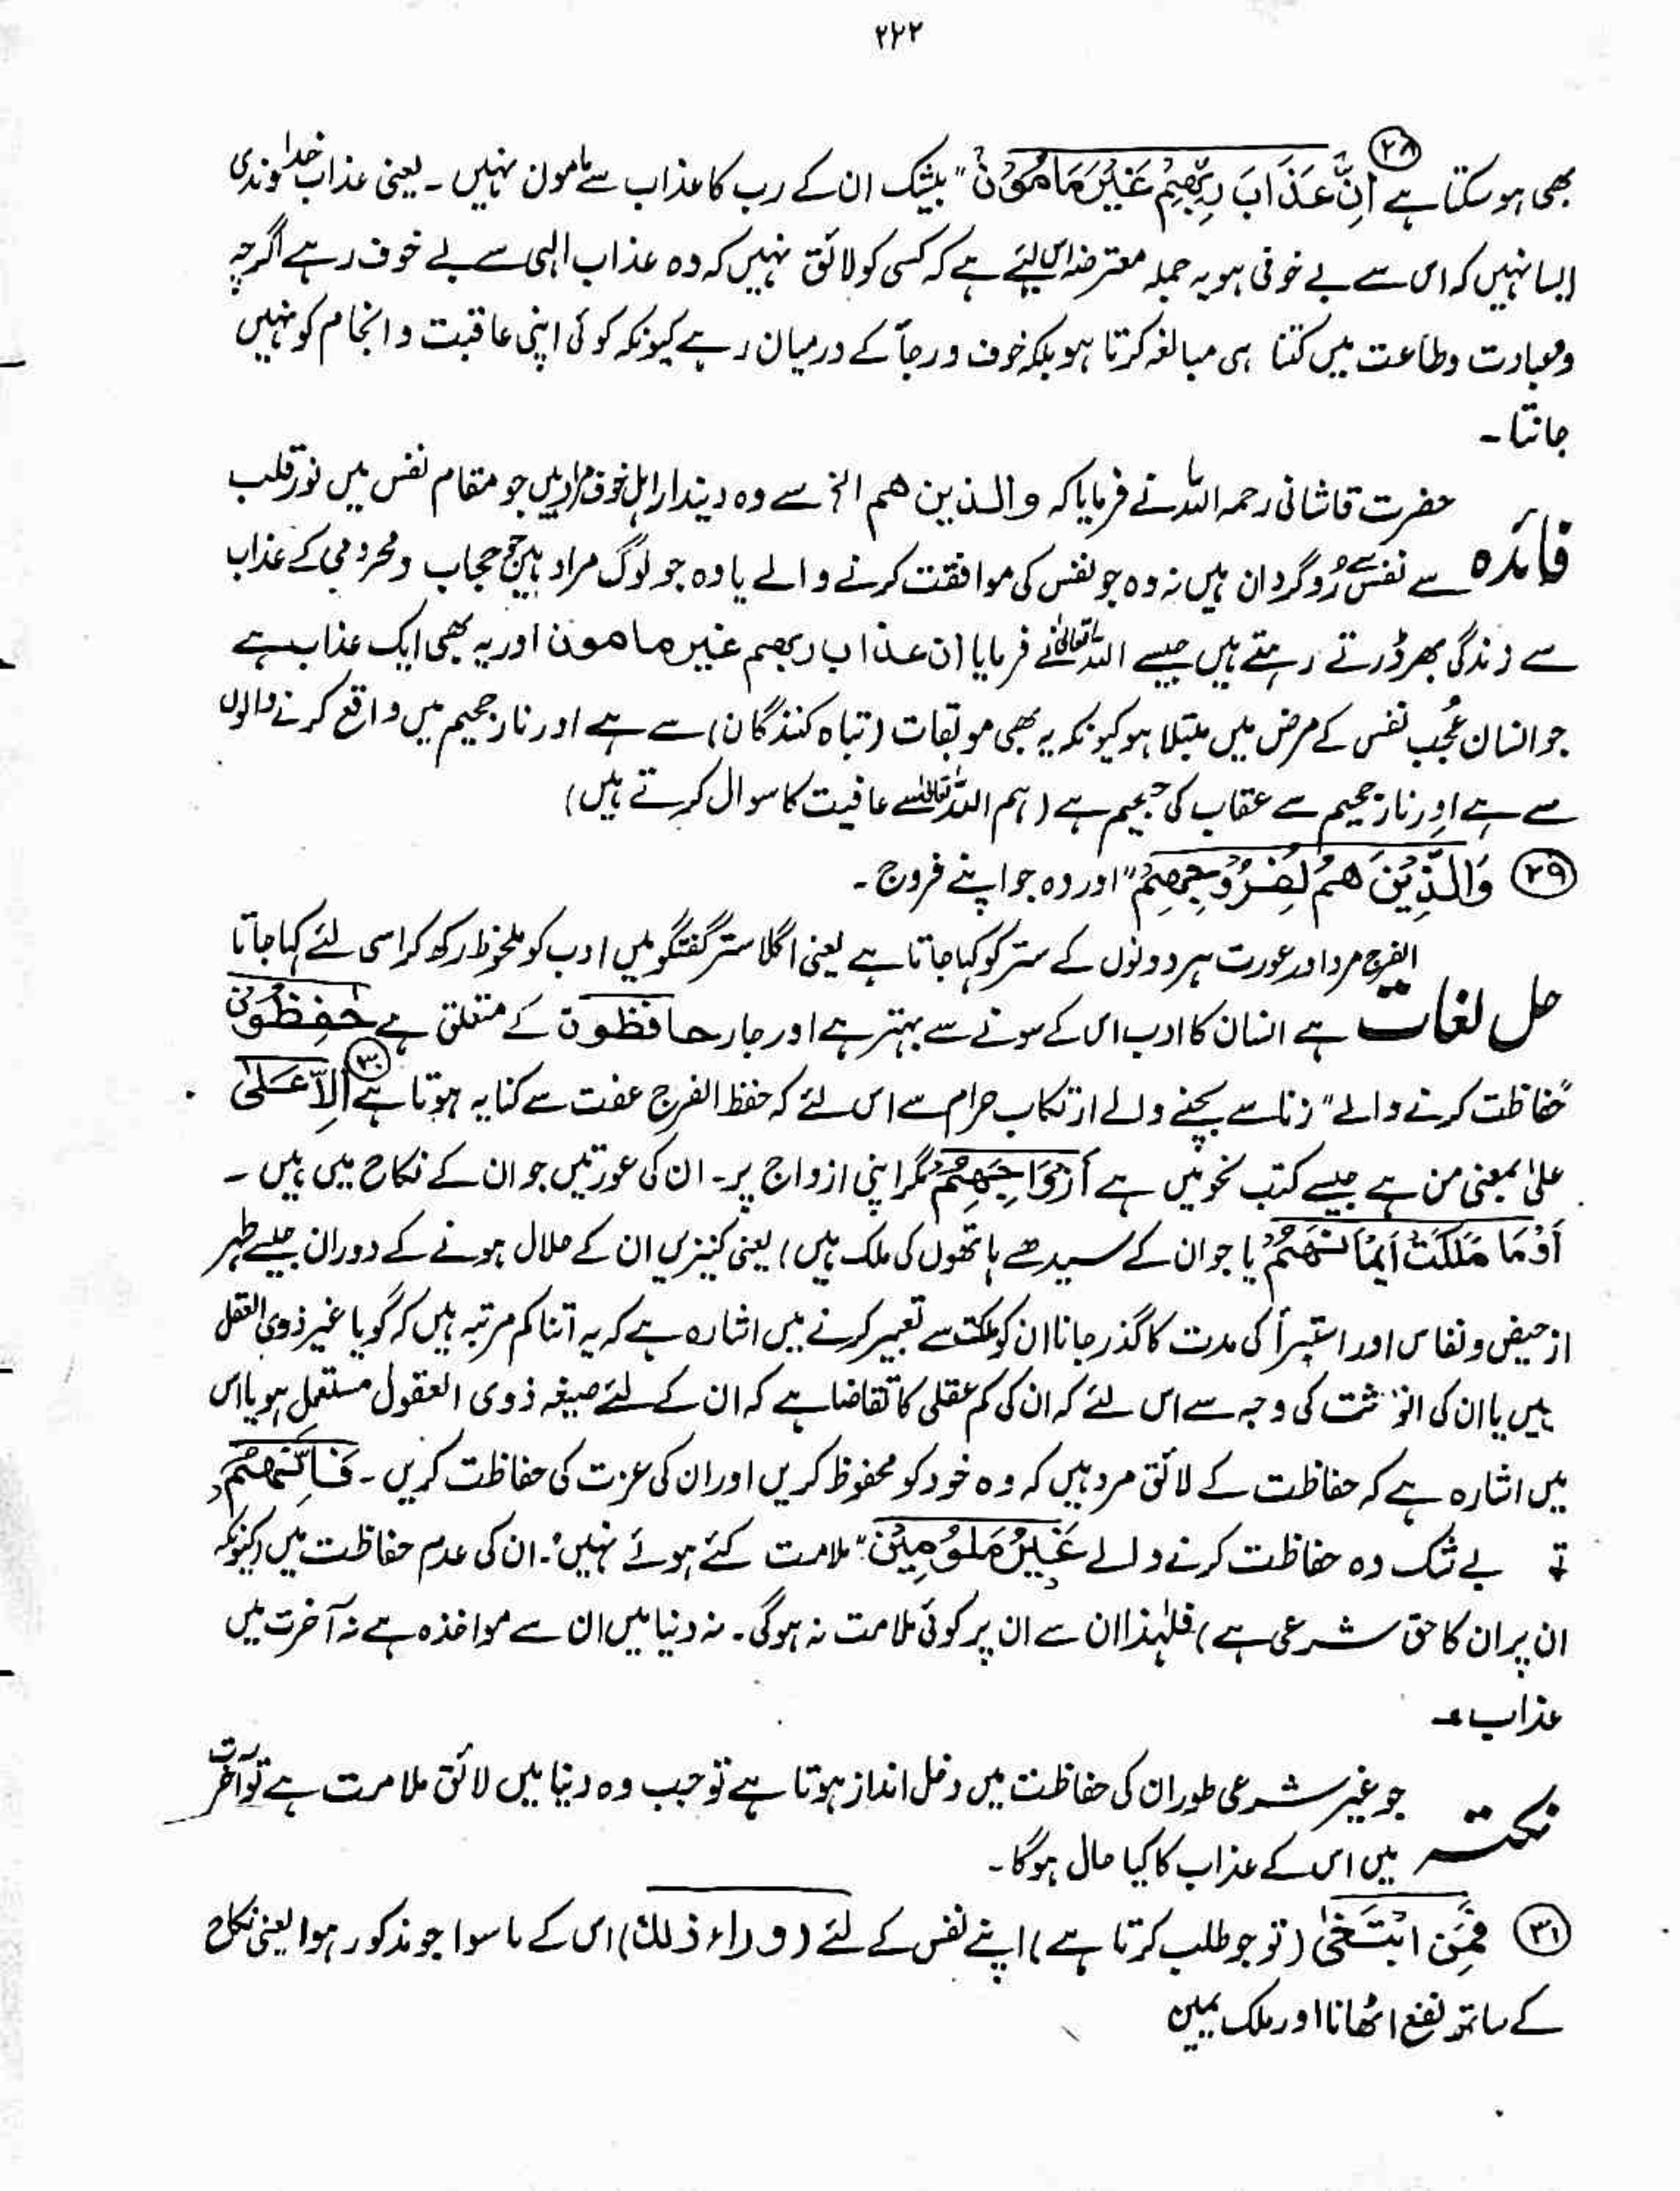 ۲۲۲
بھی ہو سکتا ہے ۲۸ اِنَّ عَذَابَ رَبِّهِمْ غَيْرُ مَاْمُوْنٍ "بیشک ان کے رب کا عذاب سے مامون نہیں ۔ یعنی عذاب خداوندی
ایسا نہیں کہ اس سے بے خوفی ہو یہ جملہ معترضہ اس لئے ہے کہ کسی کو لائق نہیں کہ وہ عذاب الٰہی سے بے خوف رہے اگرچہ
وہ عبادت وطاعت میں کتنا ہی مبالغہ کرتا ہو بلکہ خوف ورجآ کے درمیان رہے کیونکہ کوئی اپنی عاقبت و انجام کو نہیں
جانتا ۔
حضرت قاشانی رحمہ اللہ نے فرمایا کہ والذین ھم الخ سے وہ دیندار اہل خوف مراد ہیں جو مقام نفس میں نور قلب
فائدہ سے نفس سے روگردان ہیں نہ وہ جو نفس کی موافقت کرنے والے یا وہ جو لوگ مراد ہیں جو حجاب ومحرومی کے عذاب
سے زندگی بھر ڈرتے رہتے ہیں جیسے اللہ تعالیٰ نے فرمایا ان عذاب ربھم غیر مامون اور یہ بھی ایک عذاب ہے
جو انسان عُجب نفس کے مرض میں مبتلا ہو کیونکہ یہ بھی موبقات (تباہ کنندگان) سے ہے اور نار جحیم میں واقع کرنے والوں
سے ہے اور نار جحیم سے عقاب کی جحیم ہے (ہم اللہ تعالیٰ سے عافیت کا سوال کرتے ہیں)
۲۹ وَالَّذِيْنَ هُمْ لِفُرُوْجِهِمْ "اور وہ جو اپنے فروج ۔
الفرج مرد اور عورت ہر دونوں کے ستر کو کہا جاتا ہے یعنی اگلا ستر گفتگو میں ادب کو ملحوظ رکھ کر اسی لئے کہا جاتا
حل لغات ہے انسان کا ادب اس کے سونے سے بہتر ہے اور جار حافظون کے متعلق ہے حٰفِظُوْنَ
"حفاظت کرنے والے" زنا سے بچنے والے ارتکاب حرام سے اس لئے کہ حفظ الفرج عفت سے کنایہ ہوتا ہے ۳۰ اِلَّا عَلٰى
علیٰ بمعنی من ہے جیسے کتب نحو میں ہے اَزْوَاجِهِمْ مگر اپنی ازواج پر ۔ ان کی عورتیں جو ان کے نکاح میں ہیں ۔
اَوْ مَا مَلَكَتْ اَيْمَانُهُمْ یا جو ان کے سیدھے ہاتھوں کی ملک ہیں) یعنی کنیزیں ان کے حلال ہونے کے دوران جیسے طہر
از حیض ونفاس اور استبرأ کی مدت کا گذر جانا ان کو ملکت سے تعبیر کرنے میں اشارہ ہے کہ یہ اتنا کم مرتبہ ہیں کہ گویا غیر ذوی العقل
ہیں یا ان کی انوثت کی وجہ سے اس لئے کہ ان کی کم عقلی کا تقاضا ہے کہ ان کے لئے صیغہ ذوی العقول مستعمل ہو یا اس
میں اشارہ ہے کہ حفاظت کے لائق مرد ہیں کہ وہ خود کو محفوظ کریں اور ان کی عزت کی حفاظت کریں ۔ فَاِنَّهُمْ
بے شک وہ حفاظت کرنے والے غَيْرُ مَلُوْمِيْنَ "ملامت کئے ہوئے نہیں" ۔ ان کی عدم حفاظت میں (کیونکہ
ان پر ان کا حق شرعی ہے) فلہٰذا ان سے ان پر کوئی ملامت نہ ہوگی ۔ نہ دنیا میں ان سے مواخذہ ہے نہ آخرت میں
عذاب ۔
جو غیر شرعی طور ان کی حفاظت میں دخل انداز ہوتا ہے تو جب وہ دنیا میں لائق ملامت ہے تو آخرت
نکتہ میں اس کے عذاب کا کیا حال ہوگا ۔
۳۱ فَمَنِ ابْتَغٰى (تو جو طلب کرتا ہے) اپنے نفس کے لئے (وراء ذلك) اس کے ماسوا جو مذکور ہوا یعنی نکاح
کے ساتھ نفع اٹھانا اور ملک یمین